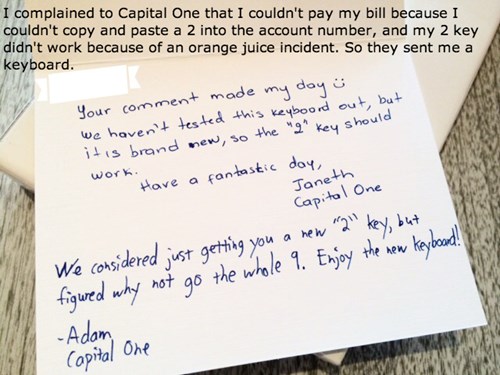 I complained to Capital One that I couldn't pay my bill because I
couldn't copy and paste a 2 into the account number, and my 2 key
didn't work because of an orange juice incident. So they sent me a
keyboard.
Your comment made my day
We haven't tested this keyboard out, but
it is brand new, so the "2" key should
work.
Have a fantastic day,
Janeth
Capital One
We considered just getting you a new "2" key, but
figured why not go the whole 9. Enjoy the new keyboard!
-Adam
Capital One